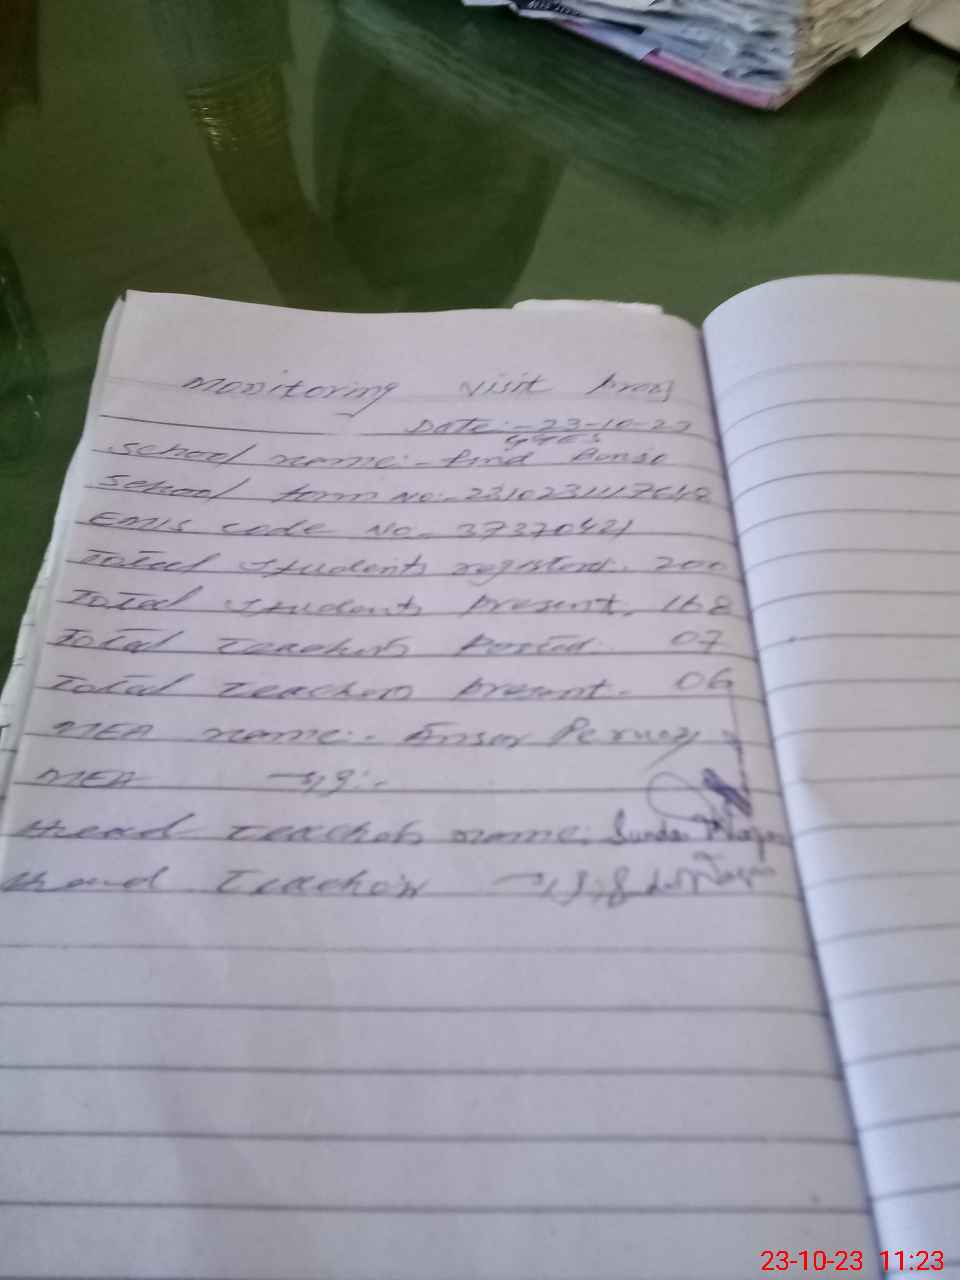 Monitoring visit Proof
Date:- 23-10-23
GGES
School name:- Pind Bonso
School form No:- 2310231117648
EMIS code No- 37370421
Total students registerd. 200
Total students present. 168
Total teachers Posted. 07
Total teachers present. 06
MEA name:- Ansar Pervaz
MEA sig:-
Head teachers name:
Head teacher's sig:
23-10-23 11:23